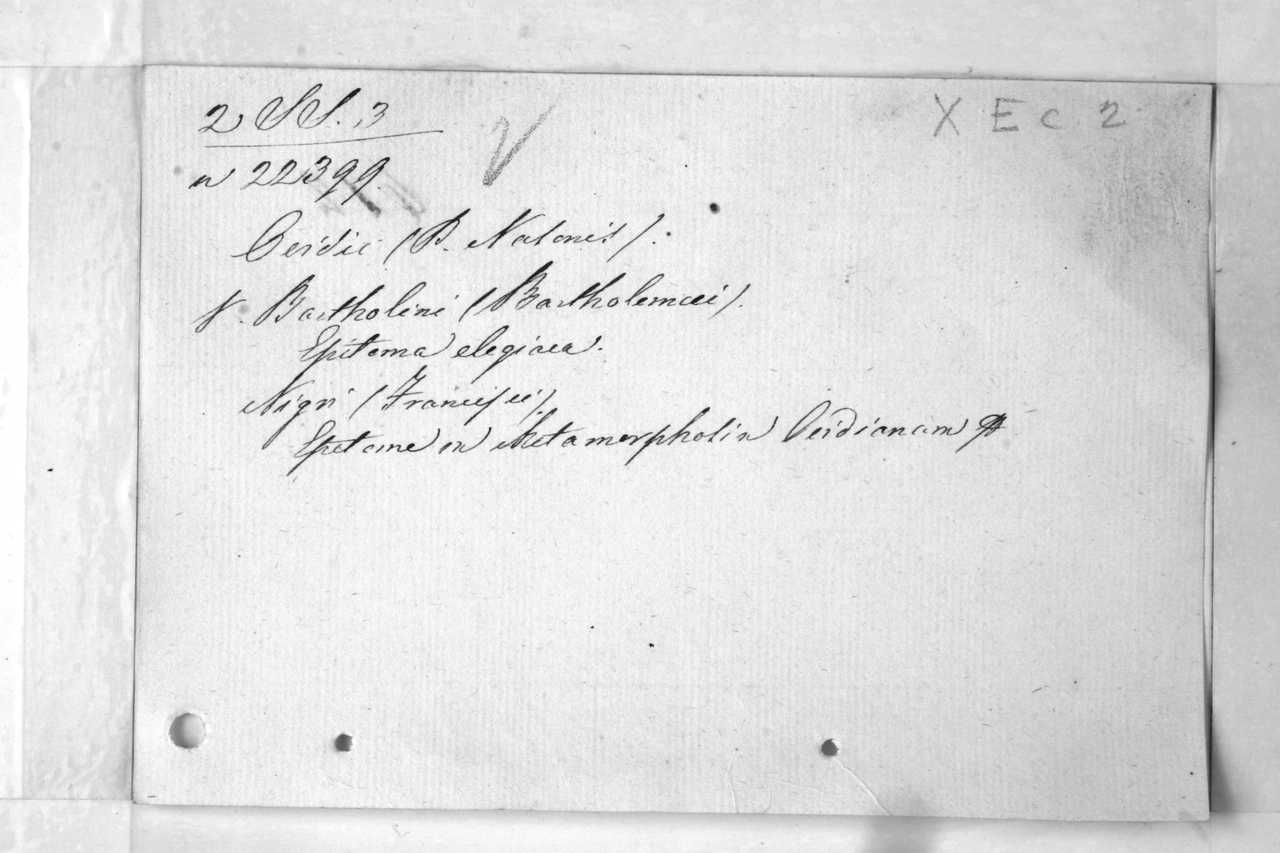 2 SS. 3
X E C 2
n 22399.
Ovidii (P. Nasonis).
V. Bartholini (Bartholemaei).
Epitoma elegiaca.
Nigri (Francisci)
Epitome in Metamorphosin Ovidianam